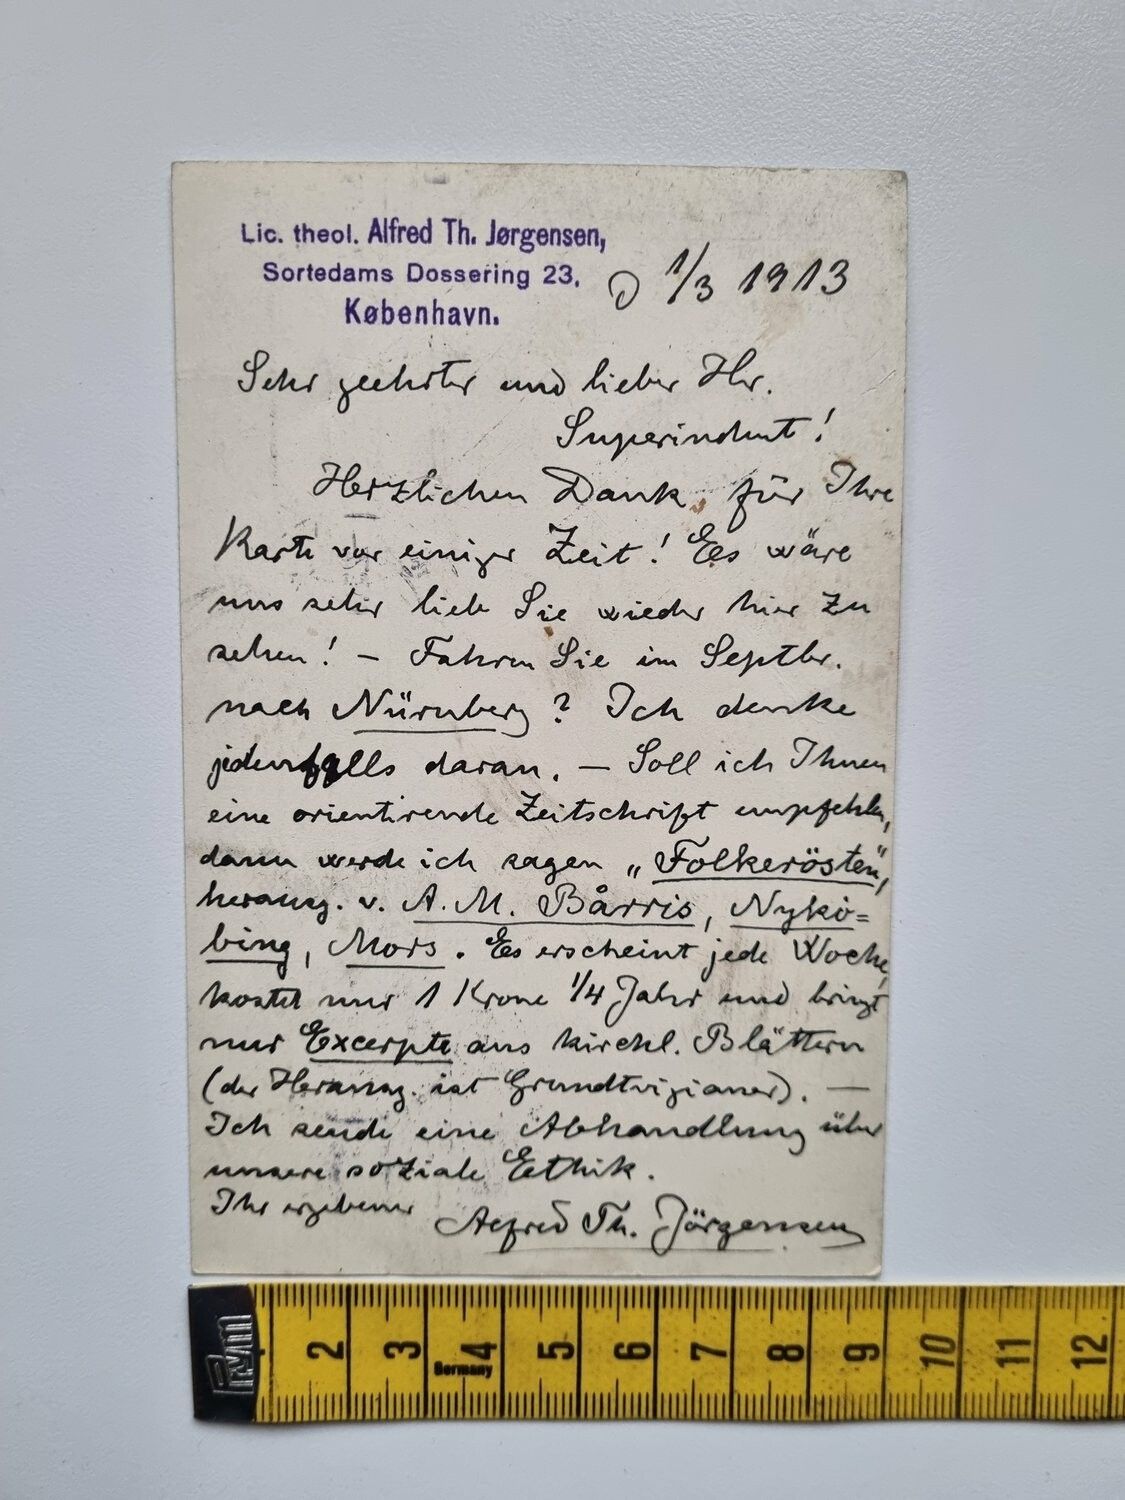 Lic. theol. Alfred Th. Jørgensen,
Sortedams Dossering 23,
København.
1/3 1913
Sehr geehrter und lieber Hr.
Superindent!
Herzlichen Dank für Ihre
Karte vor einiger Zeit! Es wäre
uns sehr lieb Sie wieder hier zu
sehen! – Fahren Sie im Septbr.
nach Nürnberg? Ich denke
jedenfalls daran. – Soll ich Ihnen
eine orientirende Zeitschrift empfehlen,
dann werde ich sagen „Folkerösten",
herausg. v. A. M. Bårris, Nykö=
bing, Mors. Es erscheint jede Woche,
kostet nur 1 Krone 1/4 Jahr und bringt
nur Excerpte aus kirchl. Blättern
(der Herausg. ist Grundtvigianer). —
Ich sende eine Abhandlung über
unsere soziale Ethik.
Ihr ergebener Alfred Th. Jörgensen
Prym
2 3 4 5 6 7 8 9 10 11 12
Germany